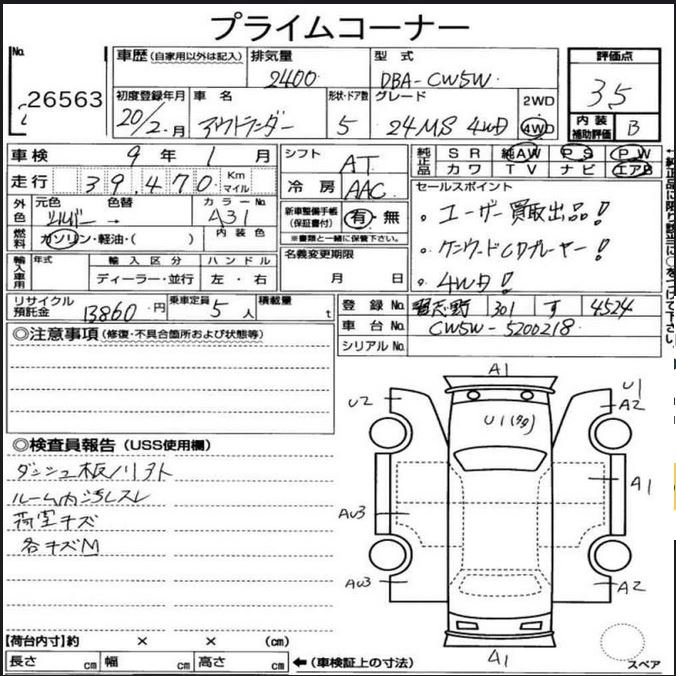 プライムコーナー
No.
26563
車歴 (自家用以外は記入) 排気量 型式 評価点
2400 DBA-CW5W 3.5
初度登録年月 車名 形状・ドア数 グレード 2WD
20/2.月 アウトランダー 5 24MS 4WD 4WD
内装補助評価 B
車検 9年 1月
走行 39,470 Km マイル
シフト AT
冷房 AAC
純正品 SR 純AW PS PW
カワ TV ナビ エアB
外色 元色 色替 カラーNo.
シルバー → A31
燃料 ガソリン・軽油・( ) 内装色
新車整備手帳(保証書付) 有・無
※書類と一緒に保管下さい。
セールスポイント
・ユーザー買取出品!
・ケンウードCDプレーヤー!
・4WD!
輸入車用 年式 輸入区分 ハンドル
ディーラー・並行 左・右
名義変更期限
月 日
リサイクル預託金 13860円 乗車定員 5人 積載量 t
登録No. 習志野 301 す 4524
車台No. CW5W-5200218
シリアルNo.
◎注意事項 (修復・不具合箇所および状態等)
◎検査員報告 (USS使用欄)
ダッシュ板ノリヲト
ルーム内汚レスレ
荷室キズ
各キズM
A1
U2
U1
A2
U1
A1
AU3
AU3
A2
A1
スペア
【荷台内寸】約 × × (cm)
長さ cm 幅 cm 高さ cm ←(車検証上の寸法)